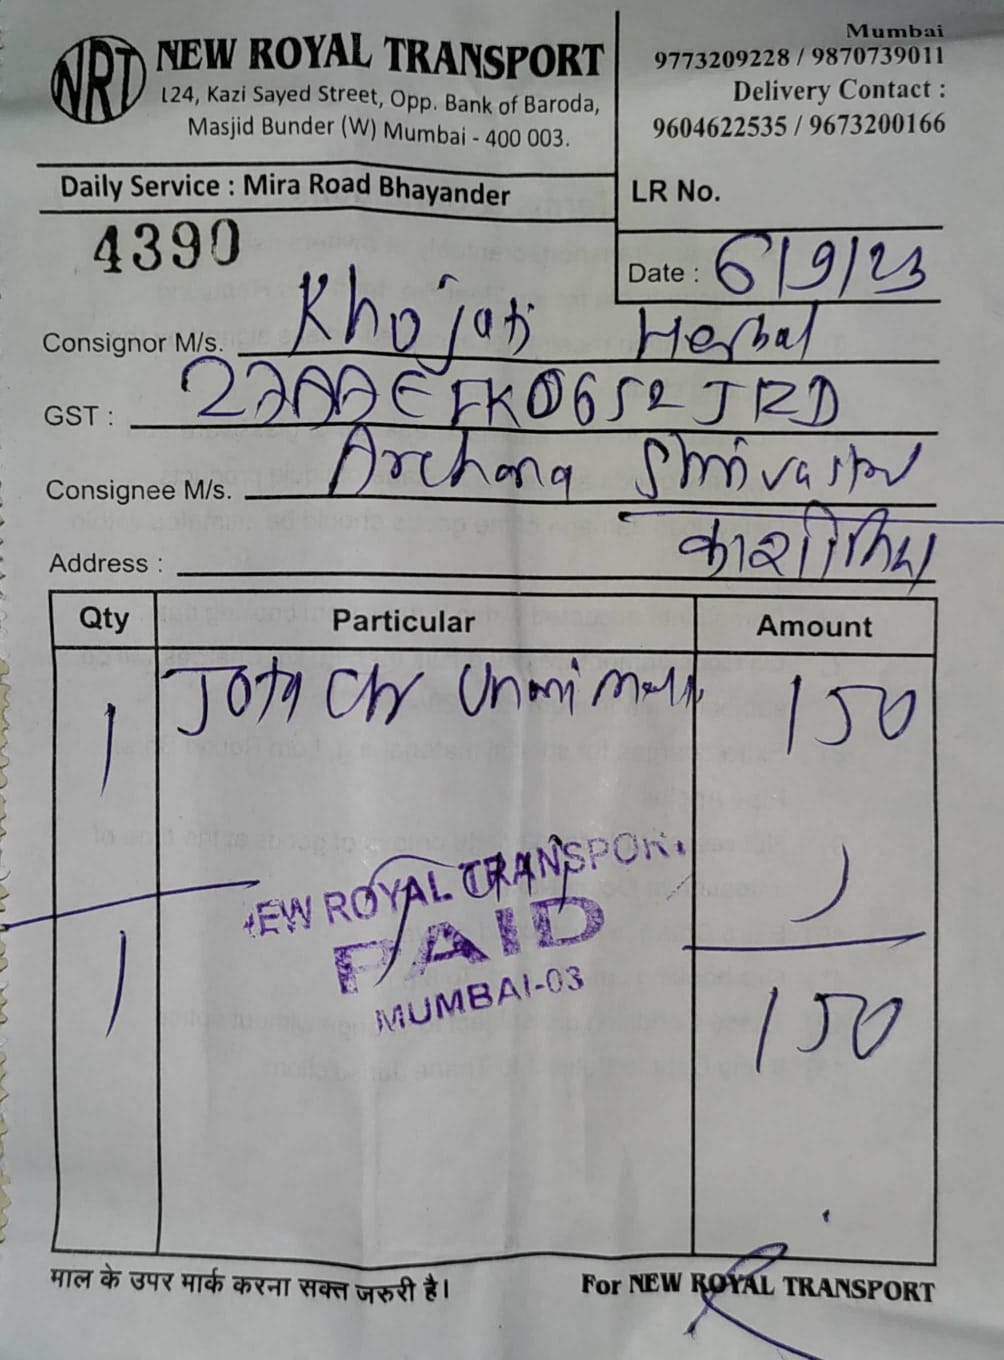 NRT
NEW ROYAL TRANSPORT
124, Kazi Sayed Street, Opp. Bank of Baroda,
Masjid Bunder (W) Mumbai - 400 003.
Mumbai
9773209228 / 9870739011
Delivery Contact :
9604622535 / 9673200166
Daily Service : Mira Road Bhayander
LR No.
4390
Date : 6/9/23
Consignor M/s. Khojati Herbal
GST :
Consignee M/s. Archana
Address :
Qty Particular Amount
1 150
NEW ROYAL TRANSPORT
PAID
MUMBAI-03
1 150
माल के उपर मार्क करना सक्त जरुरी है।
For NEW ROYAL TRANSPORT